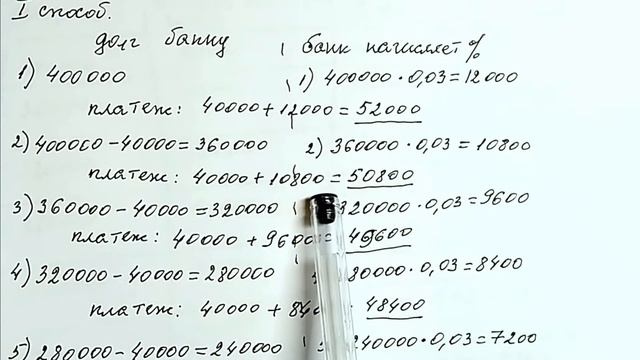 I способ.
долг банку банк начисляет %
1) 400 000 1) 400000 · 0,03 = 12 000
платеж: 40000 + 12000 = 52000
2) 400000 - 40000 = 360000 2) 360000 · 0,03 = 10800
платеж: 40000 + 10800 = 50800
3) 360000 - 40000 = 320000 320000 · 0,03 = 9600
платеж: 40000 + 9600 =
4) 320000 - 40000 = 280000 80000 · 0,03 = 8400
платеж: 40000 + 840 48400
5) 280000 - 40000 = 240000 240000 · 0,03 = 7200